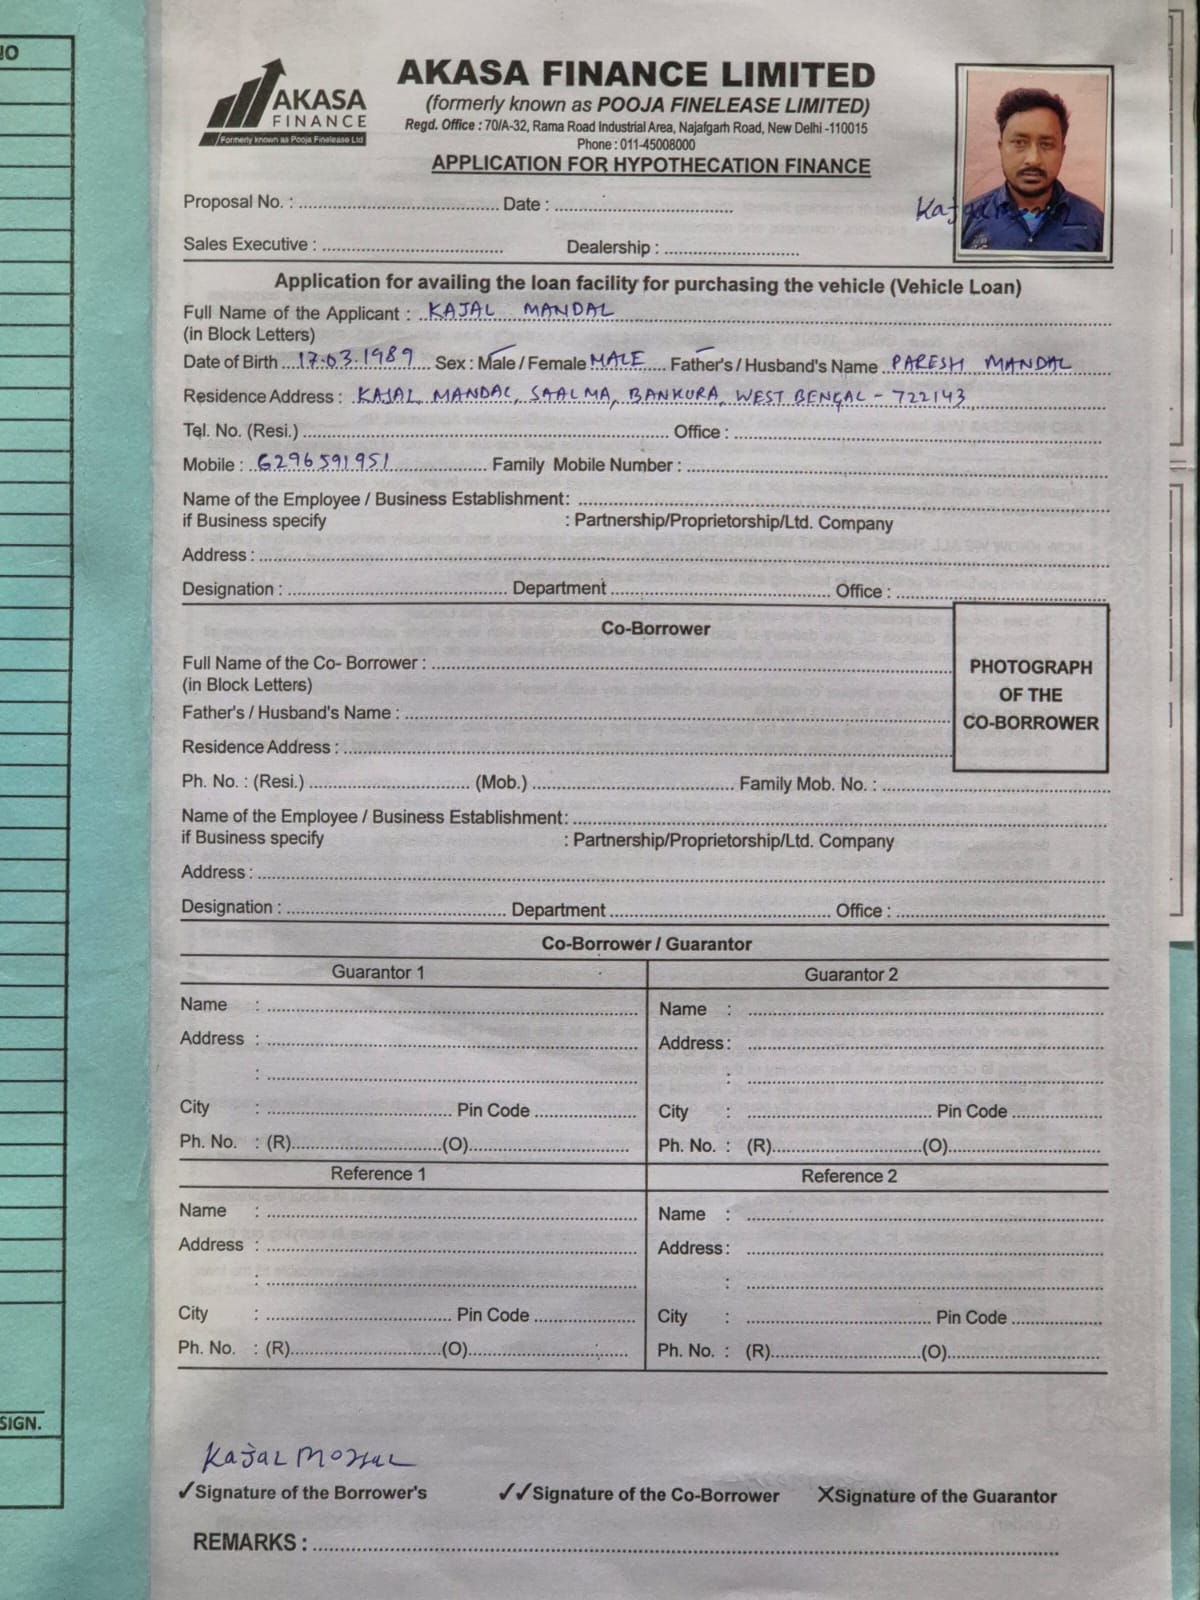 NO
SIGN.
AKASA
FINANCE
Formerly known as Pooja Finelease Ltd
AKASA FINANCE LIMITED
(formerly known as POOJA FINELEASE LIMITED)
Regd. Office : 70/A-32, Rama Road Industrial Area, Najafgarh Road, New Delhi -110015
Phone : 011-45008000
APPLICATION FOR HYPOTHECATION FINANCE
Proposal No. : Date :
Kajal
Sales Executive : Dealership :
Application for availing the loan facility for purchasing the vehicle (Vehicle Loan)
Full Name of the Applicant : KAJAL MANDAL
(in Block Letters)
Date of Birth 17.03.1989 Sex : Male / Female MALE Father's / Husband's Name PARESH MANDAL
Residence Address : KAJAL MANDAL, SAALMA, BANKURA, WEST BENGAL - 722143
Tel. No. (Resi.) Office :
Mobile : 6296591951 Family Mobile Number :
Name of the Employee / Business Establishment:
if Business specify : Partnership/Proprietorship/Ltd. Company
Address :
Designation : Department Office :
Co-Borrower
Full Name of the Co- Borrower :
(in Block Letters)
Father's / Husband's Name :
Residence Address :
PHOTOGRAPH
OF THE
CO-BORROWER
Ph. No. : (Resi.) (Mob.) Family Mob. No. :
Name of the Employee / Business Establishment:
if Business specify : Partnership/Proprietorship/Ltd. Company
Address :
Designation : Department Office :
Co-Borrower / Guarantor
Guarantor 1 Guarantor 2
Name : Name :
Address : Address :
: :
City : Pin Code City : Pin Code
Ph. No. : (R) (O) Ph. No. : (R) (O)
Reference 1 Reference 2
Name : Name :
Address : Address :
: :
City : Pin Code City : Pin Code
Ph. No. : (R) (O) Ph. No. : (R) (O)
Kajal
✓Signature of the Borrower's ✓✓Signature of the Co-Borrower XSignature of the Guarantor
REMARKS :